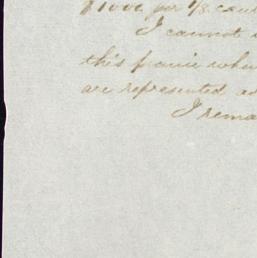 $1000. per 1/8.
I cannot
this prairie
are represented
I rema